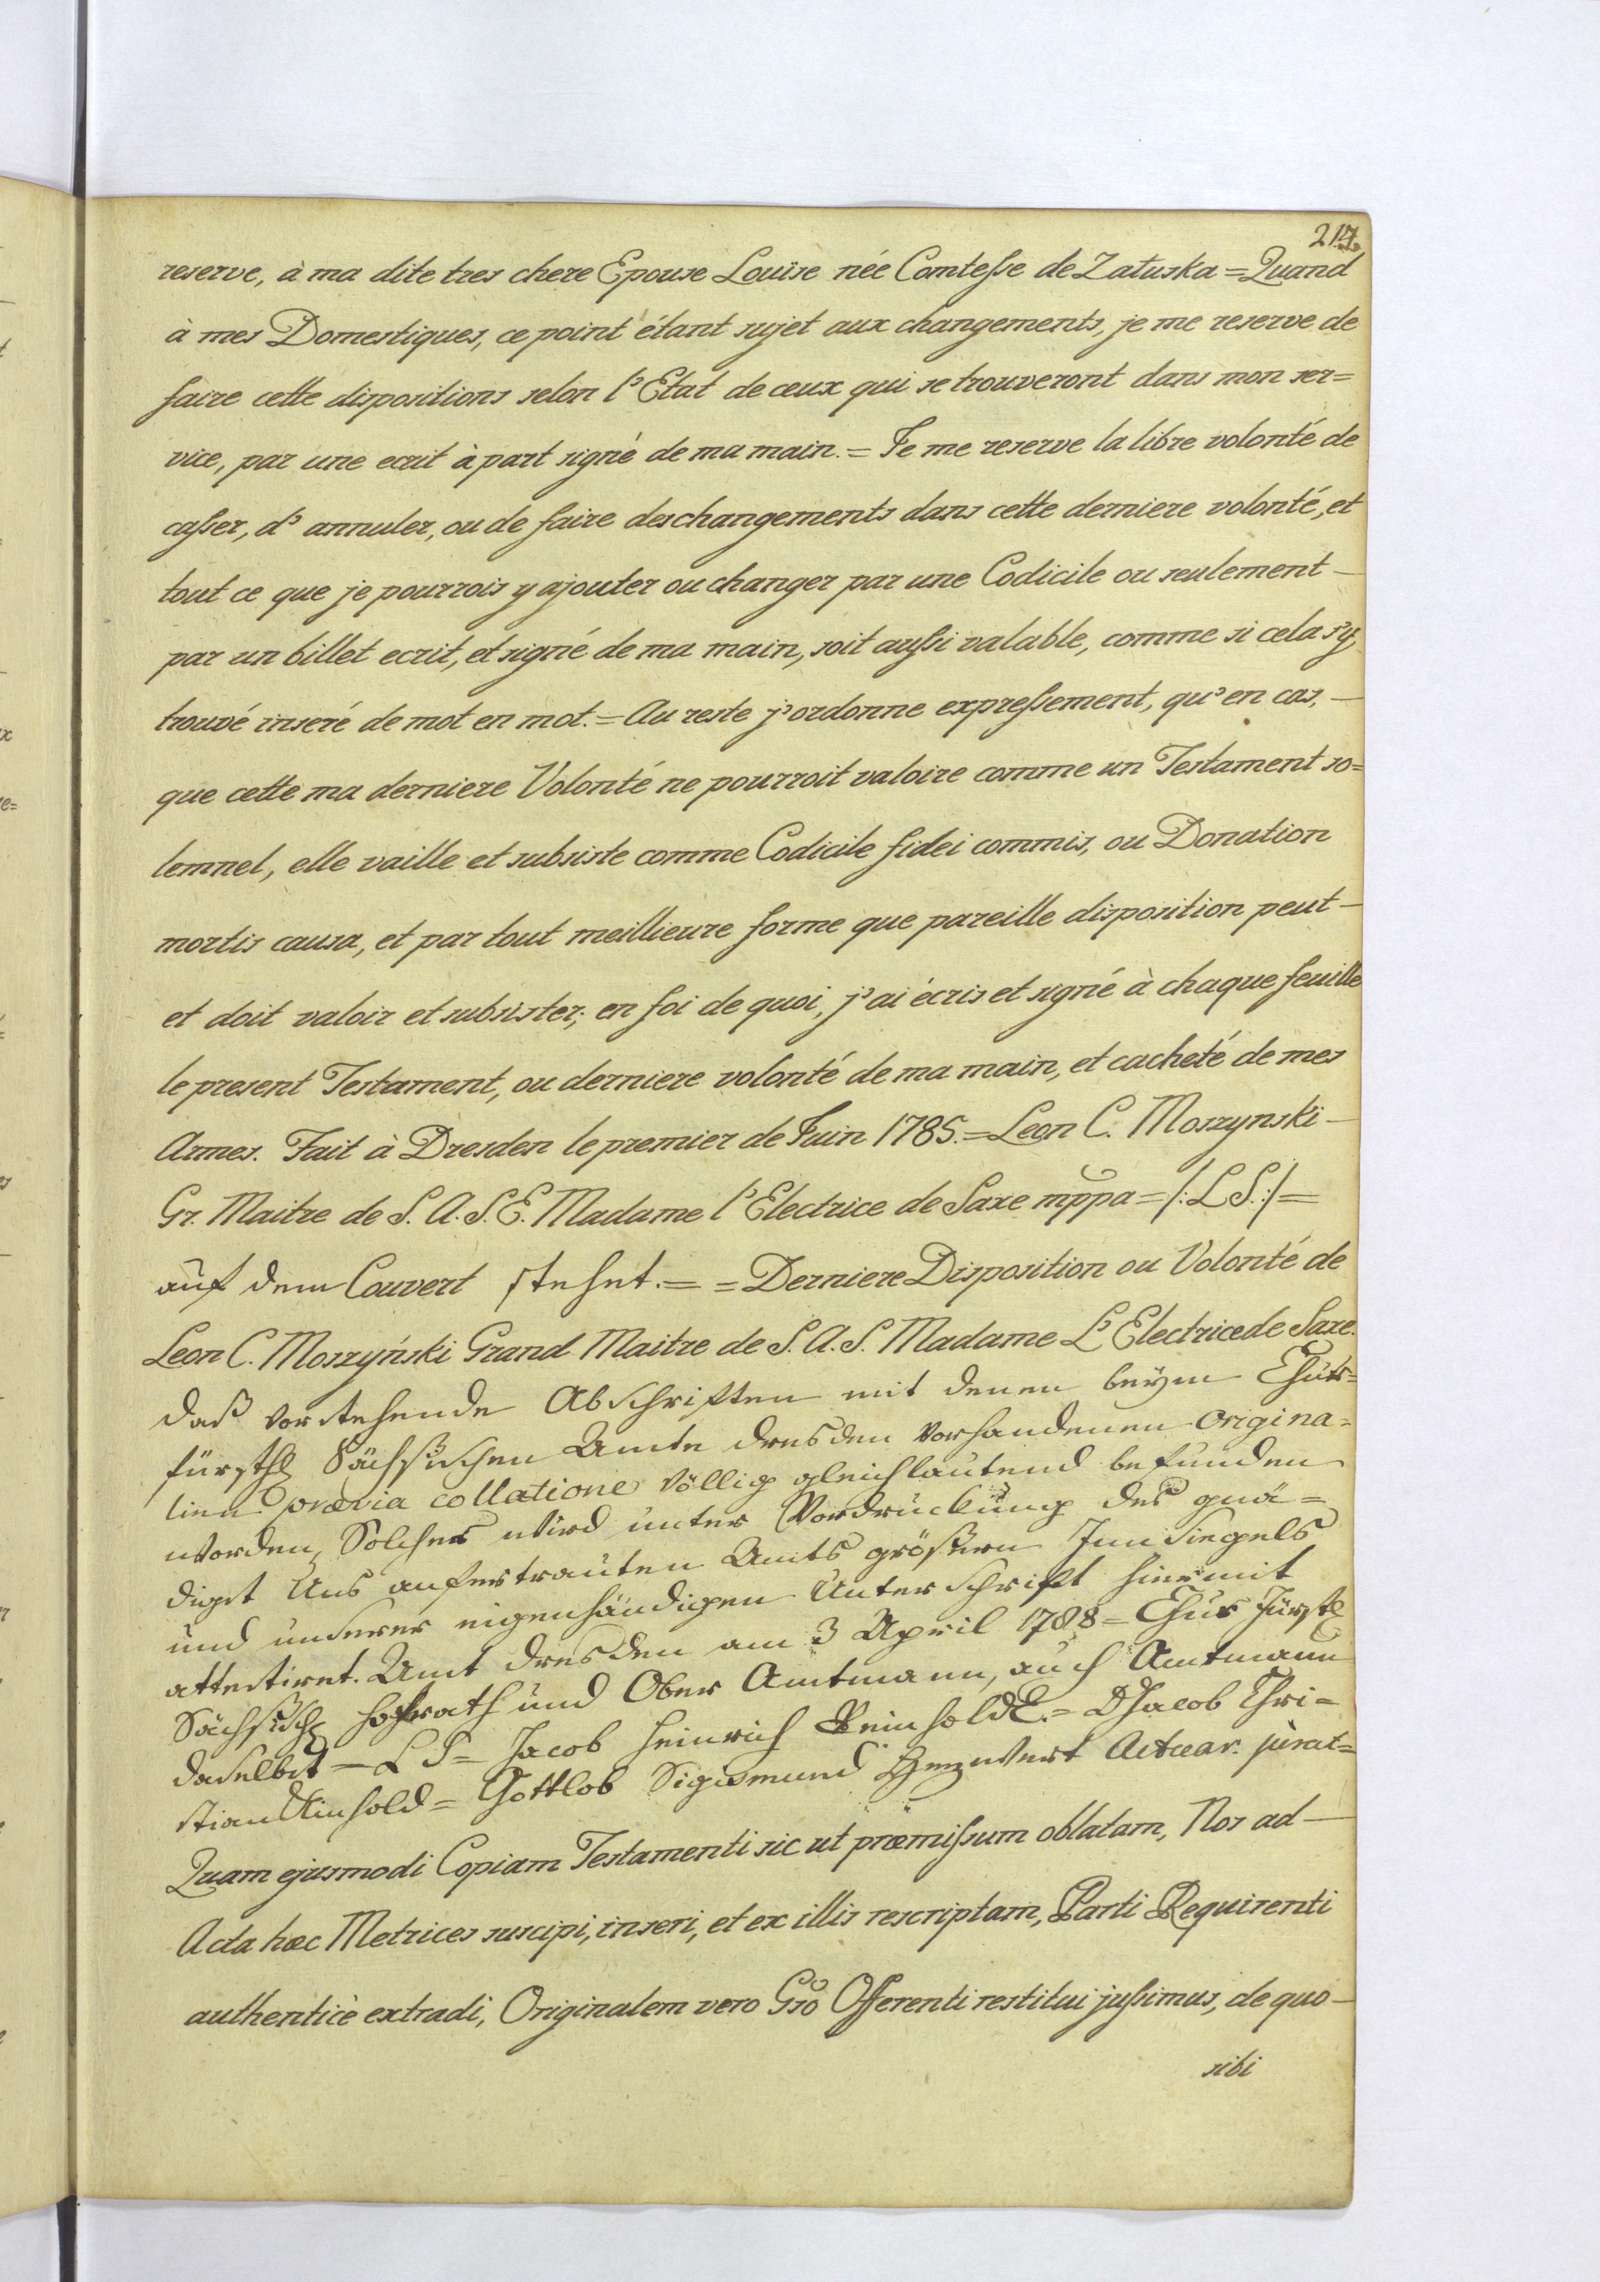 217.
reserve, à ma dite tres chere Epouse Louise née Comtesse de Zatuska = Quand
à mes Domestiques, ce point étant sujet aux changements, je me reserve de
faire cette dispositions selon l'Etat de ceux qui se trouveront dans mon ser=
vice, par une ecrit à part signé de ma main. = Je me reserve la libre volonté de
casser, d'annuler, ou de faire des changements dans cette derniere volonté, et
tout ce que je pourrois y ajouter ou changer par une Codicile ou seulement —
par un billet ecrit, et signé de ma main, soit aussi valable, comme si cela s'y
trouvé inseré de mot en mot. = Au reste j'ordonne expressement, qu'en cas, —
que cette ma derniere Volonté ne pourroit valoire comme un Testament so=
lemnel, elle vaille et subsiste comme Codicile fidei commis, ou Donation
mortis causa, et par tout meillieure forme que pareille disposition peut —
et doit valoir et subsister; en foi de quoi, j'ai écris et signé à chaque feuille
le present Testament, ou derniere volonté de ma main, et cacheté de mes
Armes. Fait à Dresden le premier de Juin 1785. = Leon C. Moszynski —
Gr. Maitre de S. A. S. E. Madame l'Electrice de Saxe mppa = /: L S. :/ =
auf dem Couvert stehet. = = Derniere Disposition ou Volonté de
Leon C. Moszyński Grand Maitre de S. A. S. Madame L'Electrice de Saxe.
Daß vorstehende Abschriften mit denen beym Chur=
fürstl Sächsischen Amte Dresden vorhandenen Origina=
lien prævia collatione völlig gleichlautend befunden
worden, Solches wird unter Vordruckung des gnä=
digst Uns anfertrauten Amts größern Innsiegels
und unserer eigenhändigen Unterschrift hiermit
attestiret. Amt Dresden am 3 April 1788 = Chur Fürstl
Sächsisch Hofrath und Ober Amtmann, auch Amtmann
daselbst — L S = Jacob Heinrich Reinhold. = Jacob Chri=
stian Reinhold = Gottlob Sigismund Actuar. jurat=
Quam ejusmodi Copiam Testamenti sic ut præmissum oblatam, Nos ad —
Acta hæc Metrices suscipi, inseri, et ex illis rescriptam, Parti Requirenti
authenticè extradi, Originalem vero Gsō Offerenti restitui jussimus, de quo —
sibi